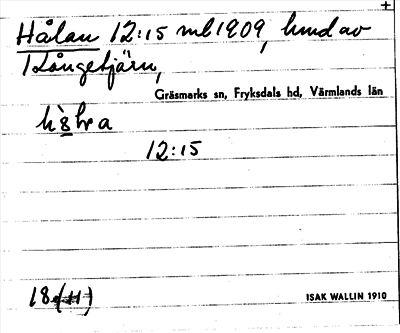 Hålan 12:15 ml 1909, hmd av
Långetjärn,
Gräsmarks sn, Fryksdals hd, Värmlands län
12:15
18
ISAK WALLIN 1910